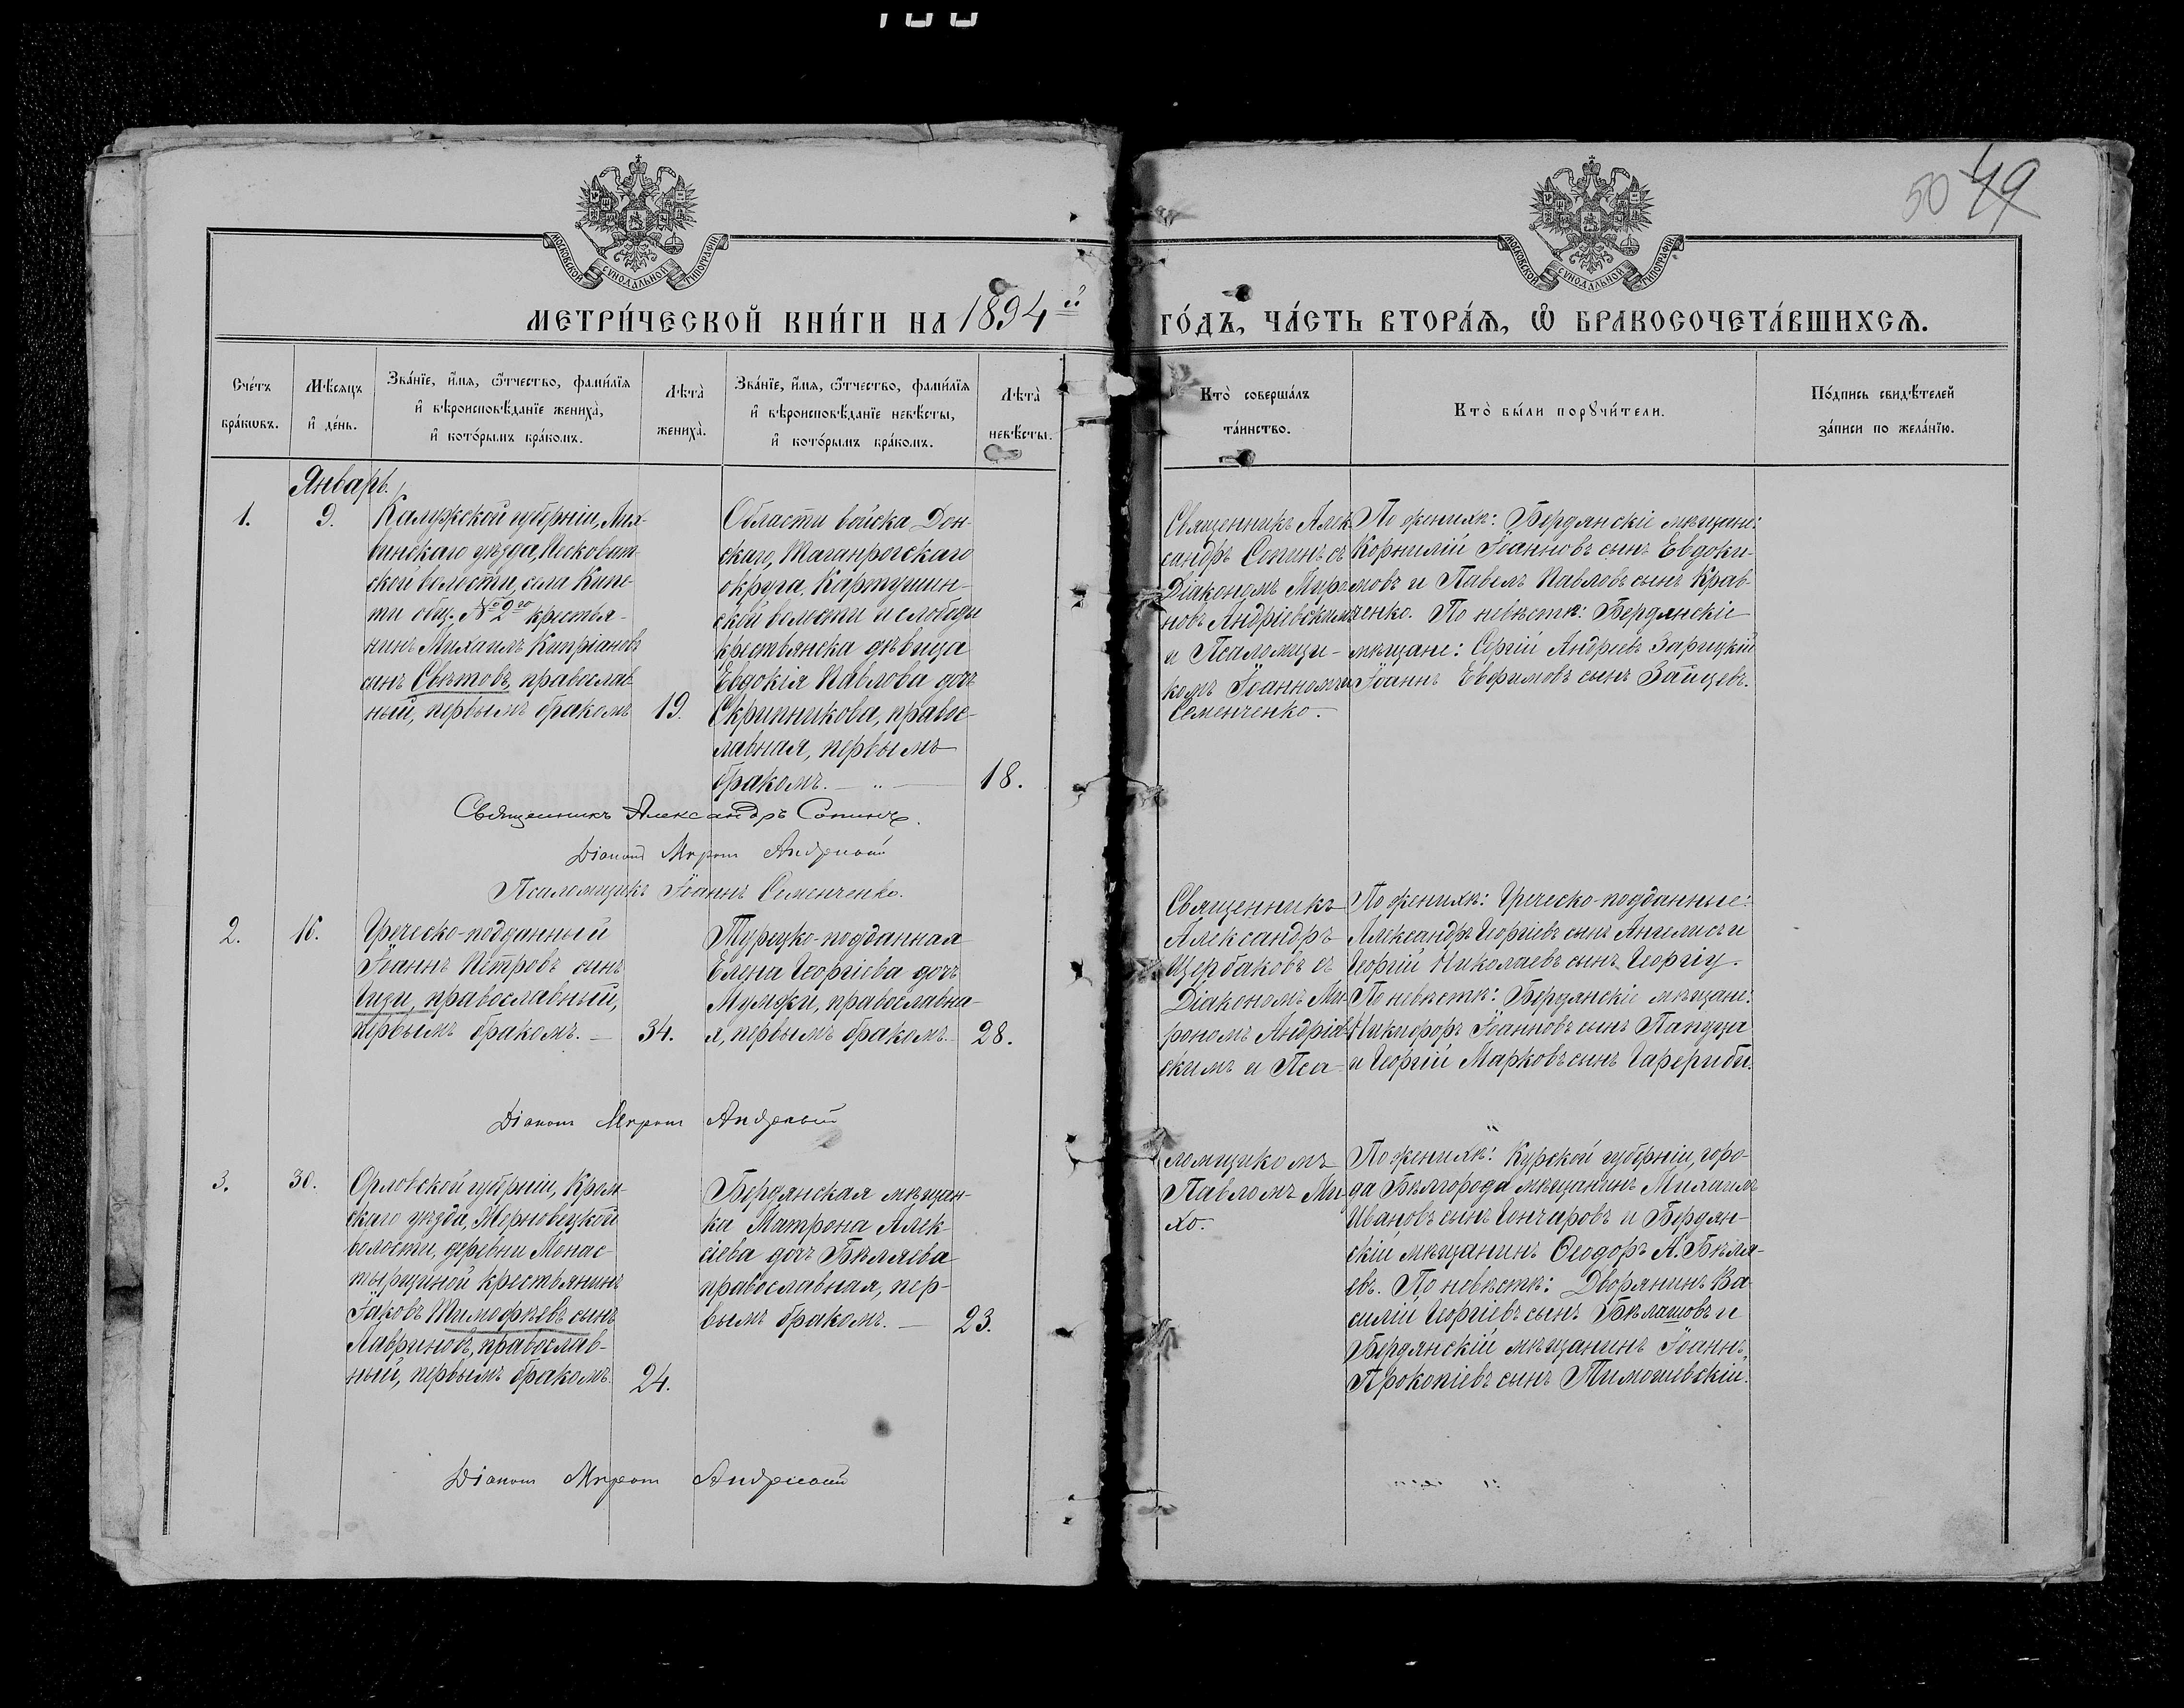 50 49
МОСКОВСКОЙ СѴНОДАЛЬНОЙ ТИПОГРАФІИ
МОСКОВСКОЙ СѴНОДАЛЬНОЙ ТИПОГРАФІИ
МЕТРИ́ЧЕСКОЙ КНИ́ГИ НА 1894й ГО́ДЪ, ЧА́СТЬ ВТОРА́Ѧ, Ѽ БРАКОСОЧЕТА́ВШИХСѦ.
Сче́тъ бра́кѡвъ.
Мѣ́сяцъ и҆ де́нь.
Зва́нїе, и҆́мѧ, ѻ҆́тчество, фамилїѧ
и҆ вѣроисповѣ́данїе жениха̀,
и҆ кото́рымъ бра́комъ.
Лѣта̀ жениха̀.
Зва́нїе, и҆́мѧ, ѻ҆́тчество, фамилїѧ
и҆ вѣроисповѣ́данїе невѣ́сты,
и҆ кото́рымъ бра́комъ.
Лѣта̀ невѣ́сты.
Кто̀ соверша́лъ та́инство.
Кто̀ бы́ли порꙋчи́тели.
По́дпись свидѣ́телей за́писи по жела́нїю.
Январь.
1.
9.
Калужской губерніи, Лих-
винскаго уѣзда, Песковат-
ской волости, села Кипе-
ти общ. №2го крестья-
нинъ Михаилъ Кипріановъ
сынъ Свѣтовъ, православ-
ный, первымъ бракомъ
19.
Области войска Дон-
скаго, Таганрогскаго
округа, Картушин-
ской волости и слободы
крестьянска дѣвица
Евдокія Павлова дочь
Скрипникова, правос-
лавная, первымъ
бракомъ.
18.
Священникъ Алек-
сандръ Сопинъ съ
Діакономъ Миро-
номъ Андріевскимъ
и Псаломщи-
комъ Іоанномъ
Семенченко.
По женихѣ: Бердянскіе мѣщане:
Корнилій Іоанновъ сынъ Евдоки-
мовъ и Павелъ Павловъ сынъ Крав-
ченко. По невѣстѣ: Бердянскіе
мѣщане: Сергій Андреевъ Зарицкій
и Іоаннъ Евфимовъ сынъ Зайцевъ.
Священникъ Александръ Сопинъ.
Діаконъ Миронъ
Псаломщикъ Іоаннъ Семенченко.
2.
16.
Греческо-подданный
Іоаннъ Петровъ сынъ
православный,
первымъ бракомъ.
34.
Турецко-подданная
Елена Георгіева дочь
Мумжи, православна-
я, первымъ бракомъ.
28.
Священникъ
Александръ
Щербаковъ съ
Діакономъ Ми-
рономъ Андріев-
скимъ и Пса-
По женихѣ: Греческо-подданные:
Александръ Георгіевъ сынъ Ангелисъ и
Георгій Николаевъ сынъ Георгіу.
По невѣстѣ: Бердянскіе мѣщане:
Никифоръ Іоанновъ сынъ Пандза
и Георгій Марковъ сынъ
Діаконъ Миронъ
3.
30.
Орловской губерніи, Кром-
скаго уѣзда, Жерновецкой
волости, деревни Монас-
тырщиной крестьянинъ
Іаковъ Тимофѣевъ сынъ
Лавриновъ, православ-
ный, первымъ бракомъ
24.
Бердянская мѣщан-
ка Матрона Алек-
сіева дочь Бѣляева
православная, пер-
вымъ бракомъ.
23.
ломщикомъ
Павломъ Ми-
хо.
По женихѣ: Курской губерніи, горо-
да Бѣлгорода мѣщанинъ Михаилъ
Ивановъ сынъ Гончаровъ и Бердян-
скій мѣщанинъ Ѳеодоръ А. Бѣля-
евъ. По невѣстѣ: Дворянинъ Ва-
силій Георгіевъ сынъ Бѣлашовъ и
Бердянскій мѣщанинъ Іоаннъ
Прокопіевъ сынъ Тимошевскій.
Діаконъ Миронъ